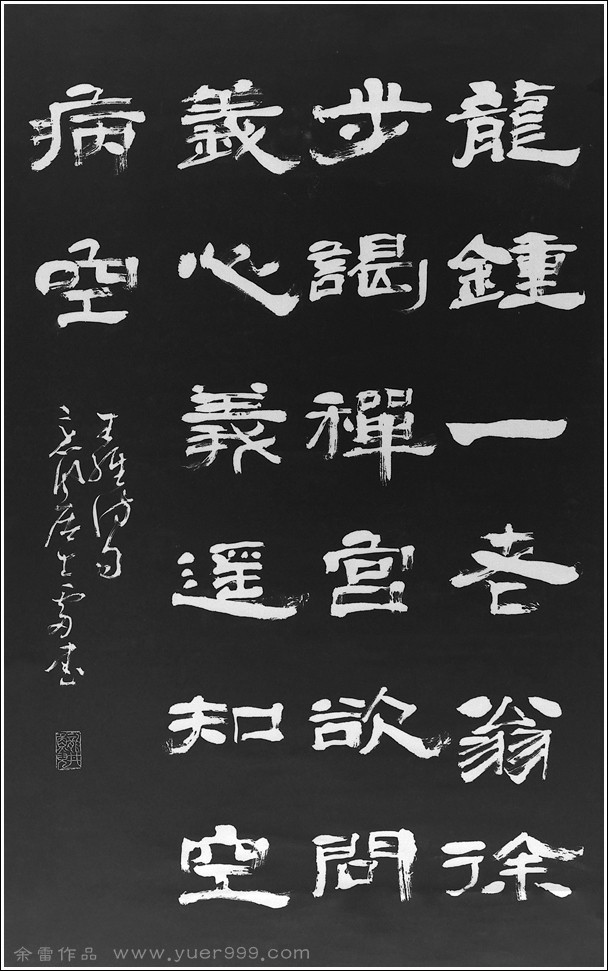 龍鍾一老翁徐
步謁禪宮欲問
義心義遥知空
病空
王維詩句
居士雷書
余雷作品 www.yuer999.com